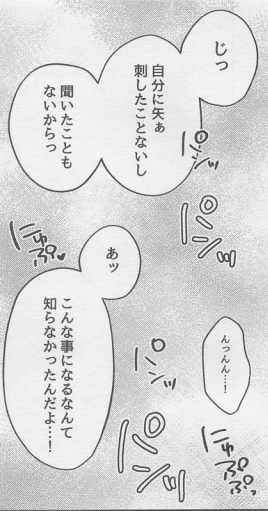 じっ
自分に矢ぁ
刺したことないし
聞いたことも
ないからっ
パンッ
パンッ
にゅぷ♥
あッ
こんな事になるなんて
知らなかったんだよ…!
んっんん…!
パンッ
パンッ
にゅぷぷっ